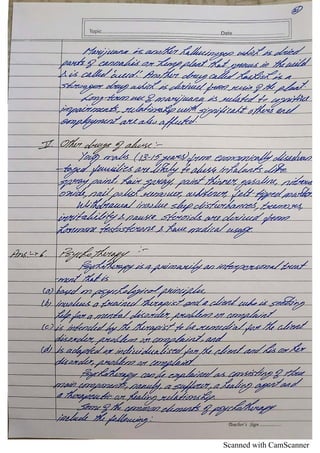 Topic Date
Marijuana is another hallucinogen which is dried
parts of cannabis or hemp plant that grows in the wild
& is called 'weed'. Another drug called hashish is a
stronger drug which is derived from resin of the plant.
Long-term use of marijuana is related to cognitive
impairments, relationship with significant others and
employment are also affected.
Other drugs of abuse :-
Young males (13-15 years) from economically disadvan
-taged families are likely to abuse inhalants like
spray paint, hair spray, paint thinner, gasoline, nitrous
oxide, nail polish remover, whitener, felt tipped marker
Withdrawal involve sleep disturbances, tremors,
irritability & nausea. Steroids are derived from
hormone testosterone & have medical usage.
Ans:-6. Psychotherapy :-
Psychotherapy is a primarily an interpersonal treat
ment that is
(a) based on psychological principles.
(b) involves a trained therapist and a client who is seeking
help for a mental disorder, problem or complaint
(c) is intended by the therapist to be remedial for the client
disorder, problem or complaint and
(d) is adapted or individualised for the client and his or her
disorder, problem or complaint.
Psychotherapy can be explained as consisting of three
main components, namely, a sufferer, a healing agent and
a therapeutic or healing relationship.
Some of the common elements of psychotherapy
include the following:
Teacher's Sign
Scanned with CamScanner